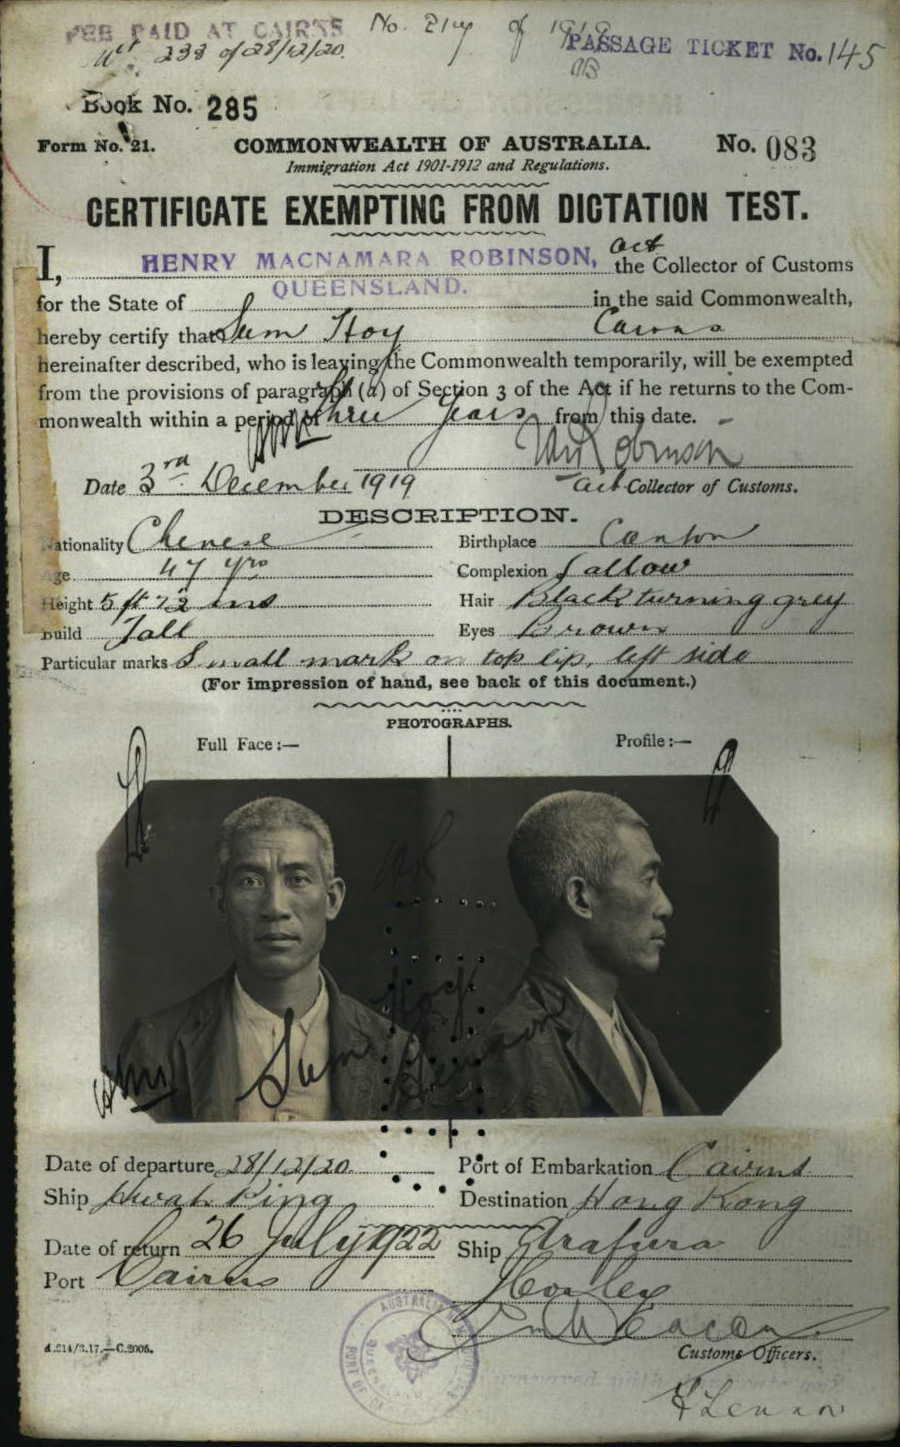 FEE PAID AT CAIRNS No. of 1919
238 of 28/12/20. PASSAGE TICKET No. 145
Book No. 285
Form No. 21. COMMONWEALTH OF AUSTRALIA. No. 083
Immigration Act 1901-1912 and Regulations.
CERTIFICATE EXEMPTING FROM DICTATION TEST.
I, HENRY MACNAMARA ROBINSON, act the Collector of Customs
for the State of QUEENSLAND. in the said Commonwealth,
hereby certify that Sum Hoy Cairns
hereinafter described, who is leaving the Commonwealth temporarily, will be exempted
from the provisions of paragraph (a) of Section 3 of the Act if he returns to the Com-
monwealth within a period of three years from this date.
Robinson
Date 3rd December 1919 Act Collector of Customs.
DESCRIPTION.
Nationality Chinese Birthplace Canton
Age 47 yrs Complexion Sallow
Height 5 ft 7½ ins Hair Black turning grey
Build Tall Eyes Brown
Particular marks Small mark on top lip, left side
(For impression of hand, see back of this document.)
PHOTOGRAPHS.
Full Face:— Profile:—
Sum
Date of departure 28/12/20 Port of Embarkation Cairns
Ship Hwah Ping Destination Hong Kong
Date of return 26 July 1922 Ship Arafura
Port Cairns
d.214/3.17.—C.2005. Customs Officers.